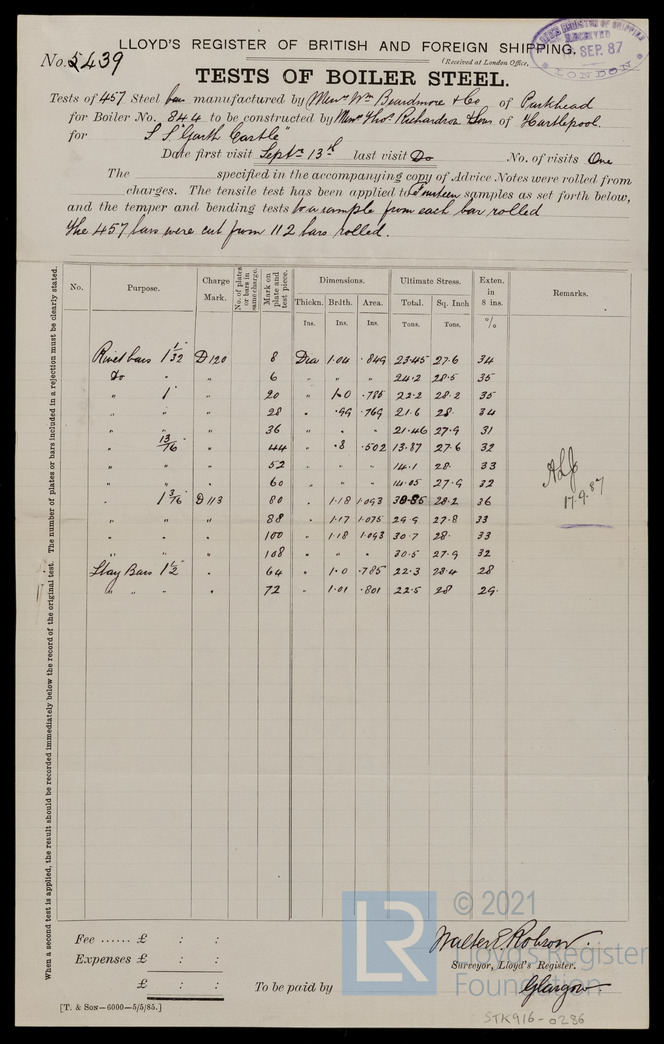 LLOYD'S REGISTER OF BRITISH AND FOREIGN SHIPPING.
No. 5439
(Received at London Office,
LLOYD'S REGISTER OF SHIPPING
RECEIVED
SEP. 87
LONDON
TESTS OF BOILER STEEL.
Tests of 457 Steel bars manufactured by Messrs Wm Beardmore & Co of Parkhead
for Boiler No. 844 to be constructed by Messrs Thos Richardson & Sons of Hartlepool.
for S S "Garth Castle"
Date first visit Septr 13th last visit Do No. of visits One
The specified in the accompanying copy of Advice Notes were rolled from
charges. The tensile test has been applied to Fourteen samples as set forth below,
and the temper and bending tests to a sample from each bar rolled
The 457 bars were cut from 112 bars rolled.
When a second test is applied, the result should be recorded immediately below the record of the original test. The number of plates or bars included in a rejection must be clearly stated.
No. Purpose. Charge Mark. No. of plates or bars in same charge. Mark on plate and test piece. Dimensions. Ultimate Stress. Exten. in 8 ins. Remarks.
Thickn. Brdth. Area. Total. Sq. Inch
Ins. Ins. Ins. Tons. Tons. %
Rivet bars 1 1/32" D 120 8 Dia 1.04 .849 23.45 27.6 34
Do " " 6 " " " 24.2 28.5 35
" 1" " 20 " 1.0 .785 22.2 28.2 35
" " " 28 " .99 .769 21.6 28. 34
" " " 36 " " " 21.46 27.9 31
" 13/16" " 44 " .8 .502 13.87 27.6 32
" " " 52 " " " 14.1 28. 33
" " " 60 " " " 14.05 27.9 32
" 1 3/16" D 113 80 " 1.18 1.093 30.85 28.2 36
" " " 88 " 1.17 1.075 29.9 27.8 33
" " " 100 " 1.18 1.093 30.7 28. 33
" " " 108 " " " 30.5 27.9 32
Stay Bars 1 1/2" " 64 " 1.0 .785 22.3 28.4 28
" " " " 72 " 1.01 .801 22.5 28 29.
17.9.87
Fee ...... £ : :
Expenses £ : :
£ : :
To be paid by
Walter E. Robson.
Surveyor, Lloyd's Register.
Glasgow
[T. & Son—6000—5/5/85.]
STK916-0286
LR
© 2021
Lloyd's Register
Foundation